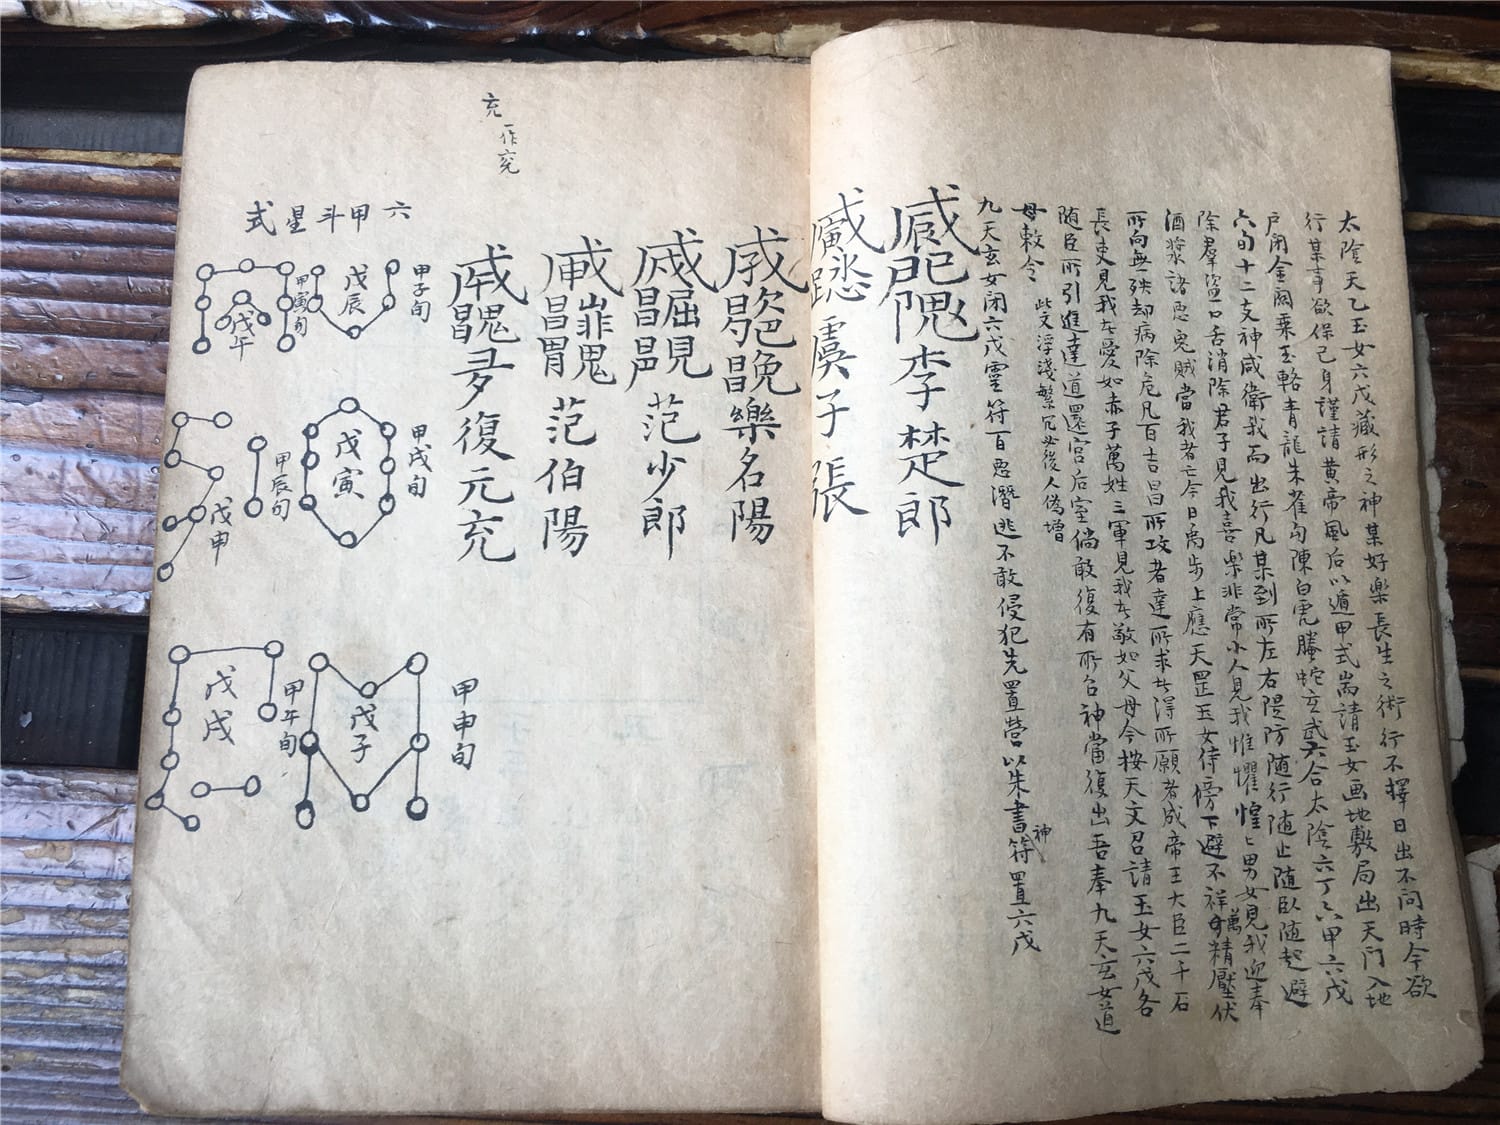 太陰天乙玉女六戊藏形之神某好樂長生之術行不擇日出不問時今欲
行某事欲保己身謹請黄帝風后以遁甲式耑請玉女画地敷局出天門入地
戶閉金關乘玉輅青龍朱雀勾陳白虎螣蛇玄武六合太陰六丁六甲六戊
六旬十二支神咸衛我而出行凡某到所左右隄防随行随止随臥随起避
除羣盜口舌消除君子見我喜樂非常小人見我惟懼惶〻男女見我迎奉
酒漿諸惡鬼賊當我者亡今日禹步上應天罡玉女侍傍下避不祥萬精壓伏
所向無殃却病除危凡百吉昌所攻者達所求者得所願者成帝王大臣二千石
長吏見我者愛如赤子萬姓三軍見我者敬如父母今按天文召請玉女六戊各
随臣所引進達道還宮后室倘敢復有所召神當復出吾奉九天玄女道
母敕令
此文浮淺繁冗必後人偽增
九天玄女閉六戊靈符百惡潛逃不敢侵犯先置營以朱書符置六戊
神
李楚郎
虞子張
樂名陽
范少郎
范伯陽
復元充
充一作兖
六甲斗星式
甲子旬
戊辰
甲寅旬
戊午
甲戌旬
戊寅
甲辰旬
戊申
甲申旬
戊子
甲午旬
戊戌